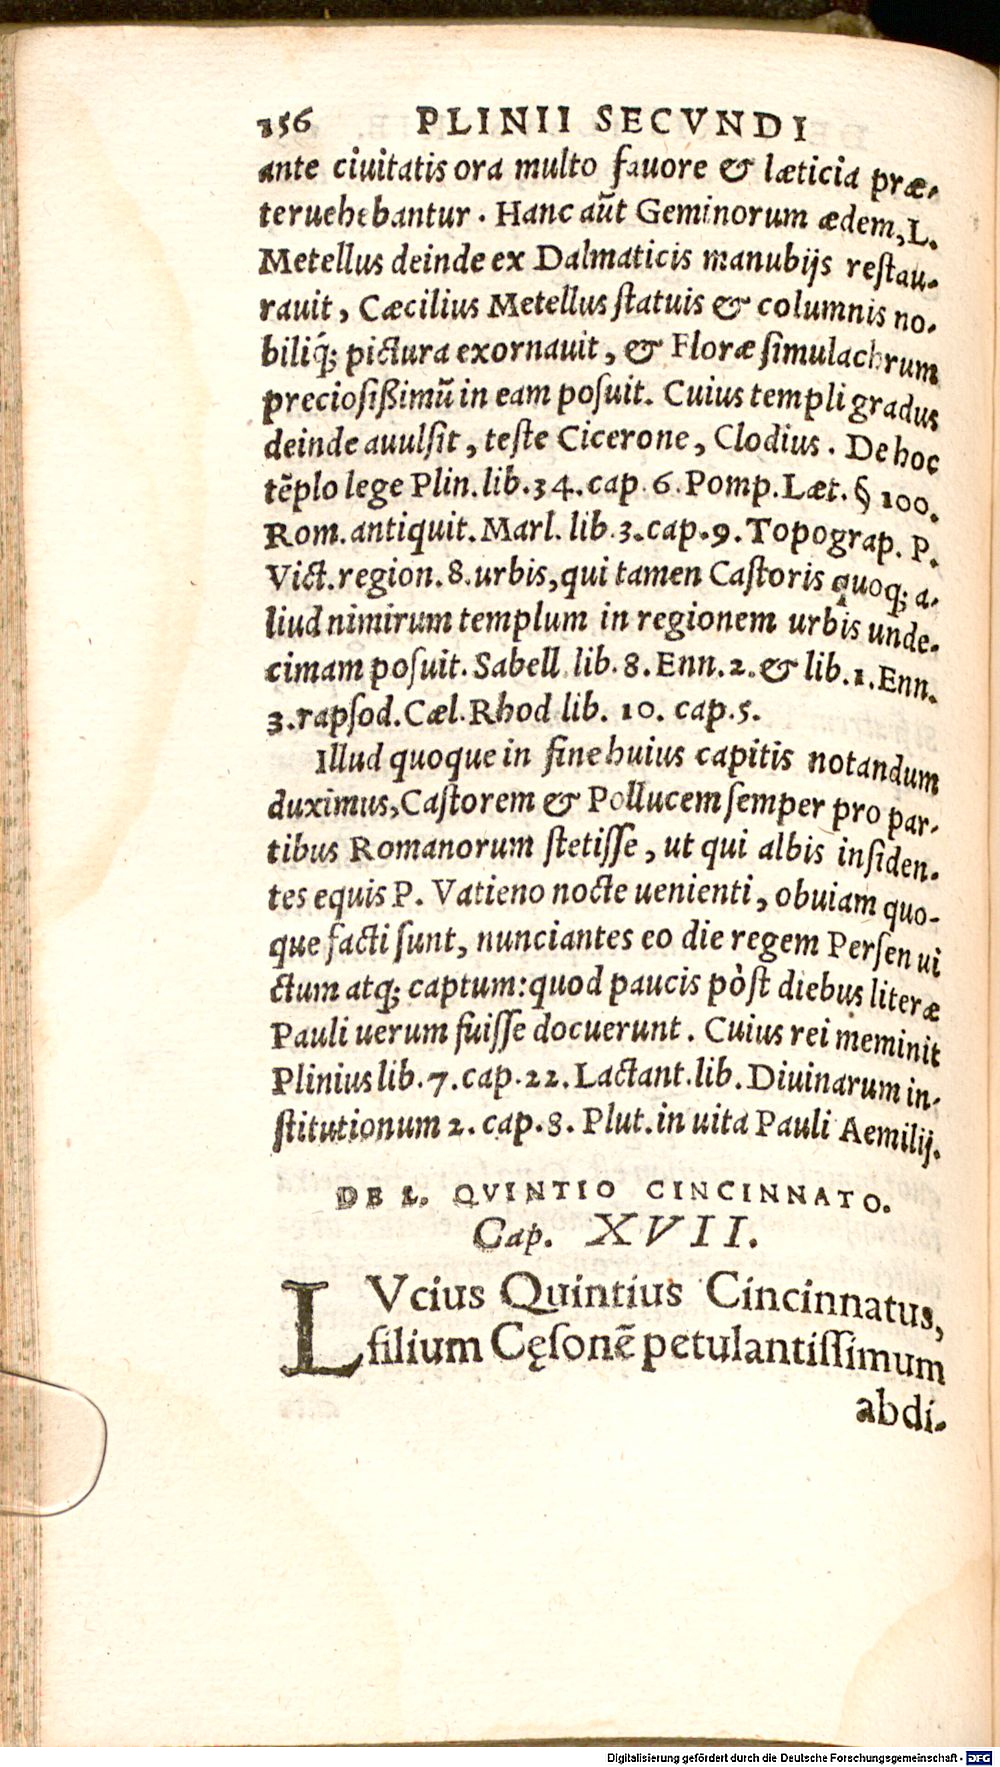 156 PLINII SECVNDI
ante ciuitatis ora multo fauore & læticia præ-
teruehebantur. Hanc aūt Geminorum ædem, L.
Metellus deinde ex Dalmaticis manubijs restau-
rauit, Cæcilius Metellus statuis & columnis no-
biliq́; pictura exornauit, & Floræ simulachrum
preciosißimū in eam posuit. Cuius templi gradus
deinde auulsit, teste Cicerone, Clodius. De hoc
tēplo lege Plin. lib. 34. cap. 6. Pomp. Læt. § 100.
Rom. antiquit. Marl. lib. 3. cap. 9. Topograp. P.
Vict. region. 8. urbis, qui tamen Castoris quoq; a-
liud nimirum templum in regionem urbis unde-
cimam posuit. Sabell. lib. 8. Enn. 2. & lib. 1. Enn.
3. rapsod. Cæl. Rhod lib. 10. cap. 5.
Illud quoque in fine huius capitis notandum
duximus, Castorem & Pollucem semper pro par-
tibus Romanorum stetisse, ut qui albis insiden-
tes equis P. Vatieno nocte uenienti, obuiam quo-
que facti sunt, nunciantes eo die regem Persen ui
ctum atq; captum: quod paucis pòst diebus literæ
Pauli uerum fuisse docuerunt. Cuius rei meminit
Plinius lib. 7. cap. 22. Lactant. lib. Diuinarum in-
stitutionum 2. cap. 8. Plut. in uita Pauli Aemilij.
DE L. QVINTIO CINCINNATO.
Cap. XVII.
LVcius Quintius Cincinnatus,
filium Cęsonē petulantissimum
abdi-
Digitalisierung gefördert durch die Deutsche Forschungsgemeinschaft - DFG